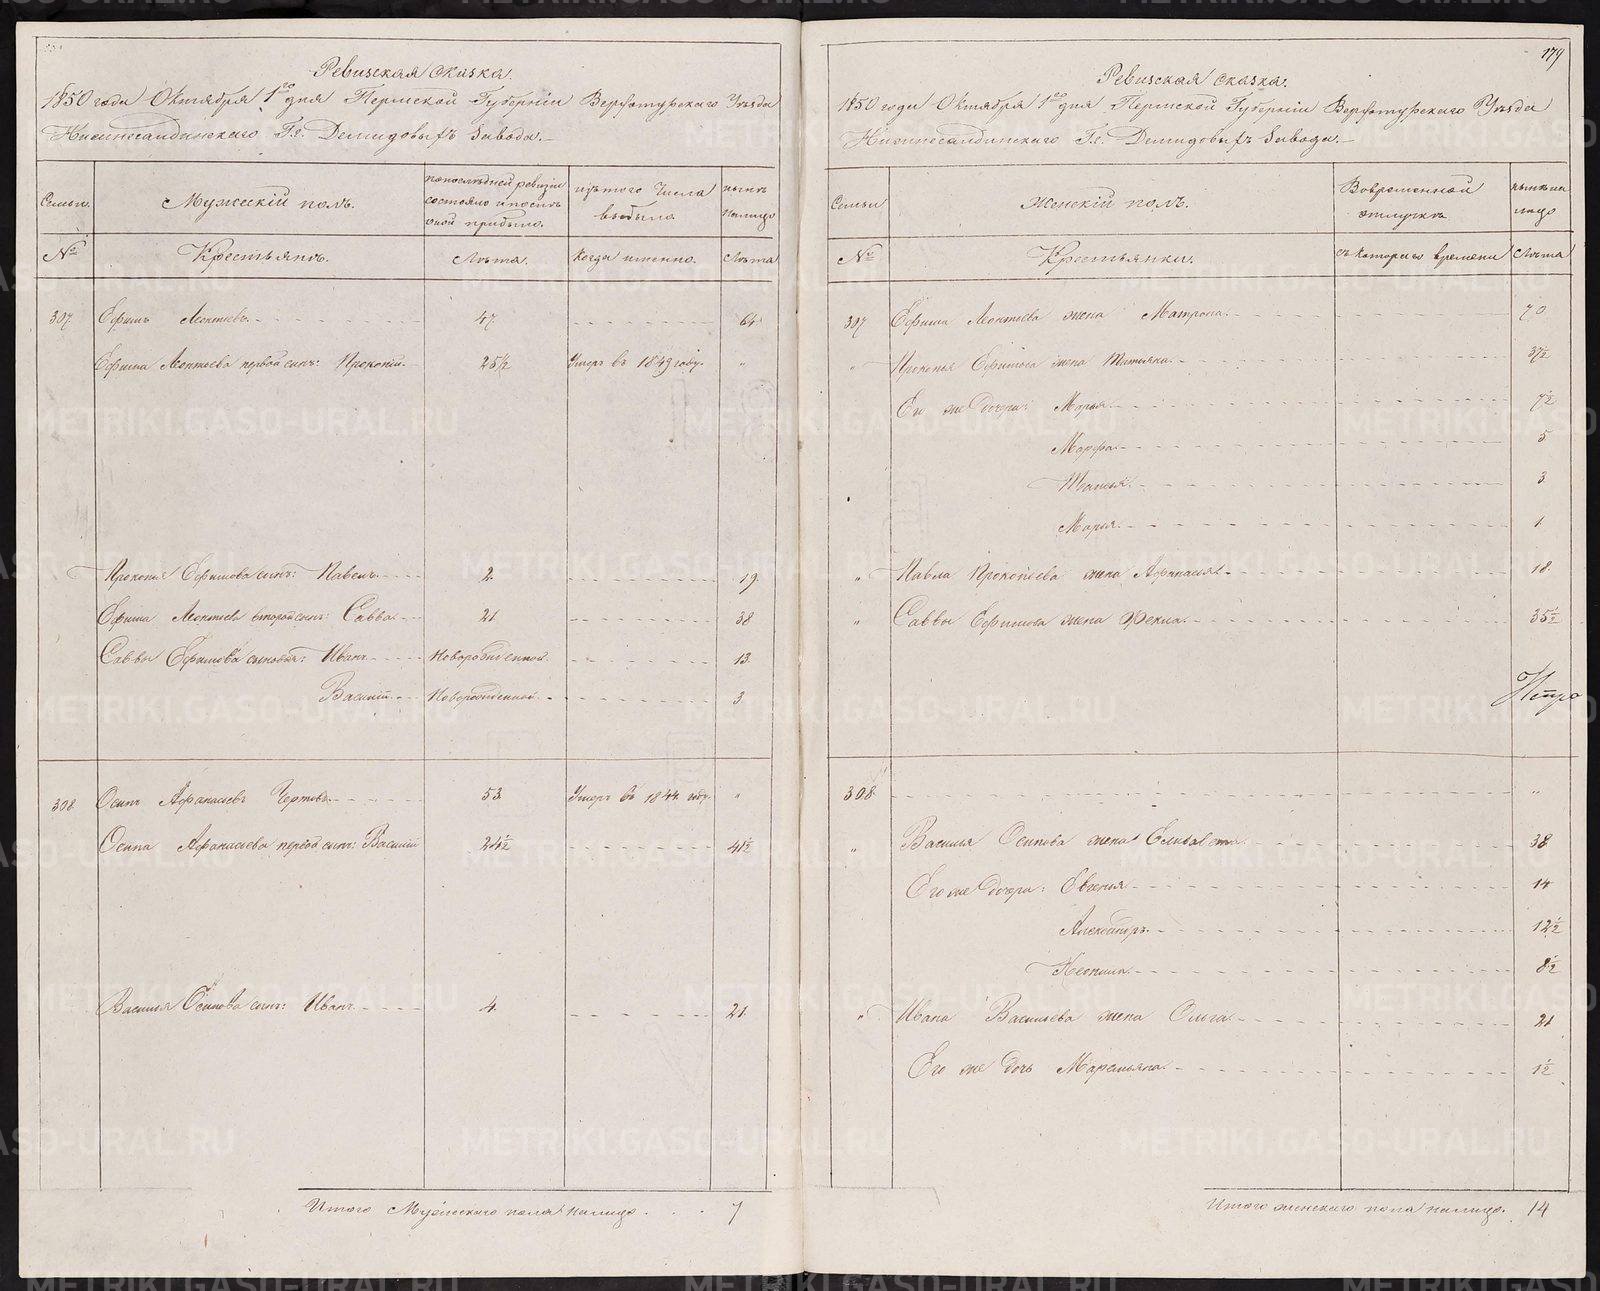 Ревизская сказка.
1850 года Октября 1го дня Пермской Губерніи Верхотурскаго Уѣзда
Нижнесалдинскаго Г.г. Демидовыхъ завода.
Семьи.
Мужескій полъ.
по последней ревизіи
состояло и после
оной прибыло.
изъ того числа
выбыло
нынѣ
на лицо
№
Крестьяне.
Лѣта.
Когда именно.
Лѣта
307. Ефимъ Леонтьевъ. 47. 64
Ефима Леонтьева первой сынъ: Прокопій. 25½ Умеръ въ 1849 году. "
Прокопья Ефимова сынъ: Павелъ. 2. 19.
Ефима Леонтьева второй сынъ: Савва. 21. 38
Саввы Ефимова сыновья: Иванъ Новорожденной. 13.
Василій. Новорожденной. 3
308. Осипъ Афанасьевъ Чертовъ. 53. Умеръ въ 1844 году. "
Осипа Афанасьева первой сынъ: Василій 24½ 41½
Василья Осипова сынъ: Иванъ. 4. 21.
Итого Мужескаго пола на лицо . . . 7
179
Ревизская сказка.
1850 года Октября 1го дня Пермской Губерніи Верхотурскаго Уѣзда
Нижнесалдинскаго Г.г. Демидовыхъ завода.
Семьи
Женскій полъ.
Во временной
отлучкѣ
нынѣ на
лицо
№
Крестьянки.
съ котораго времени
Лѣта
307. Ефима Леонтьева жена Матрона. 70
" Прокопья Ефимова жена Татьяна. 37½
Его же дочери: Марья. 7½
Марфа. 5
3
Марья. 1.
" Павла Прокопьева жена Афанасья. 18.
" Саввы Ефимова жена Фекла. 35½
308. "
" Василья Осипова жена Елизавета. 38
Его же дочери: Евгенья 14
Александра. 12½
8½
" Ивана Васильева жена Ольга. 21
Его же дочь Маремьяна. 1½
Итого женскаго пола на лицо. 14
METRIKI.GASO-URAL.RU